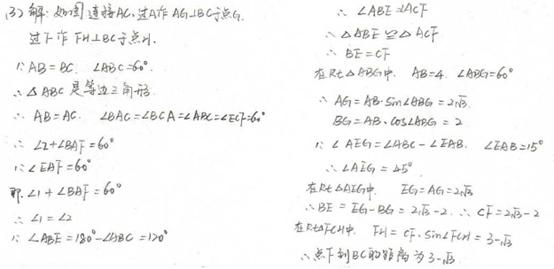 (3) 解：如图连接AC，过A作AG⊥BC于点G.
过F作FH⊥BC于点H.
∵AB=BC. ∠ABC=60°.
∴△ABC是等边三角形
∴AB=AC. ∠BAC=∠BCA=∠ABC=∠ECF=60°
∴∠2+∠BAF=60°
∵∠EAF=60°
即∠1+∠BAF=60°
∴∠1=∠2
∵∠ABE=180°-∠ABC=120°
∴∠ABE=∠ACF
∴△ABE≌△ACF
∴BE=CF
在Rt△ABG中. AB=4. ∠ABG=60°
∴AG=AB·sin∠ABG=2√3.
BG=AB·cos∠ABG=2
∵∠AEG=∠ABC-∠EAB. ∠EAB=15°
∴∠AEG=45°
在Rt△AEG中. EG=AG=2√3
∴BE=EG-BG=2√3-2. ∴CF=2√3-2
在Rt△FCH中. FH=CF·sin∠FCH=3-√3
∴点F到BC的距离为3-√3